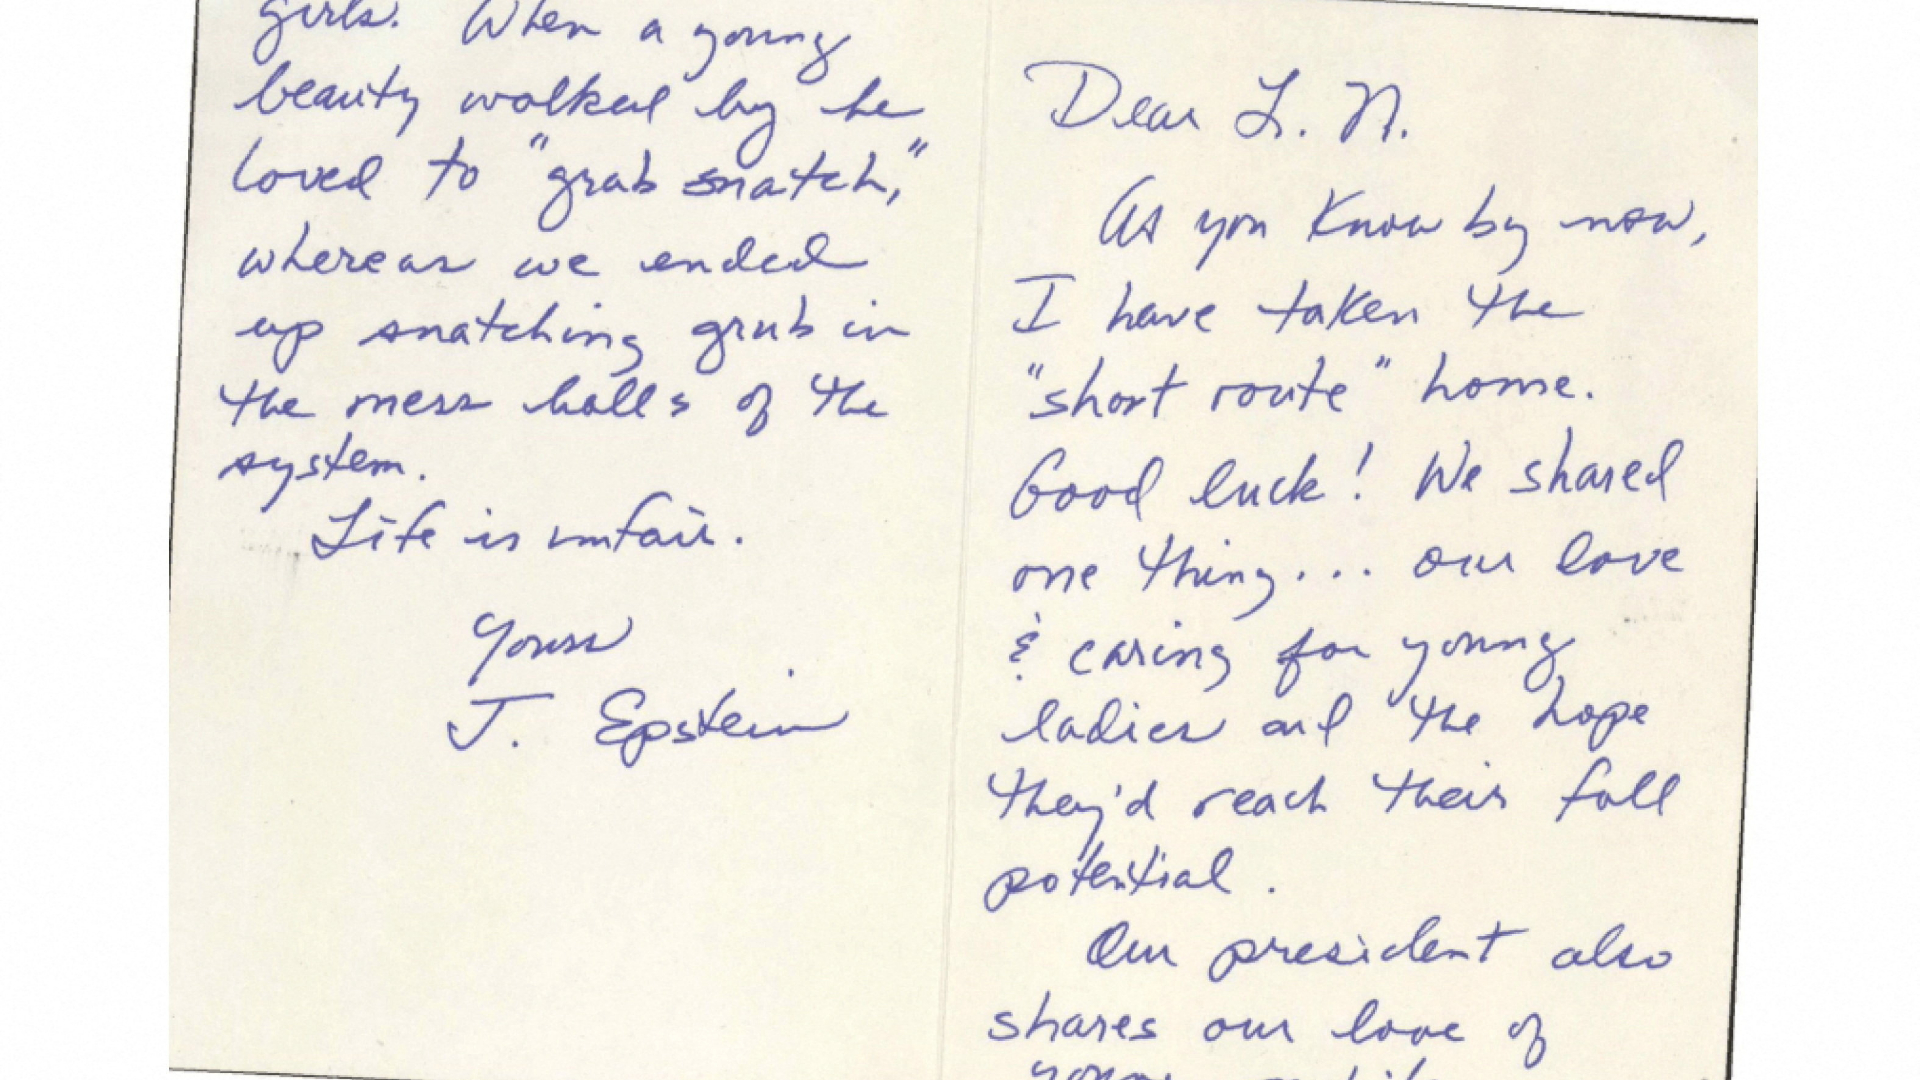 Dear L. N.
As you know by now,
I have taken the
"short route" home.
Good luck! We shared
one thing... our love
& caring for young
ladies and the hope
they'd reach their full
potential.
Our president also
shares our love of
young
girls. When a young
beauty walked by he
loved to "grab snatch,"
whereas we ended
up snatching grub in
the mess halls of the
system.
Life is unfair.
Yours
J. Epstein